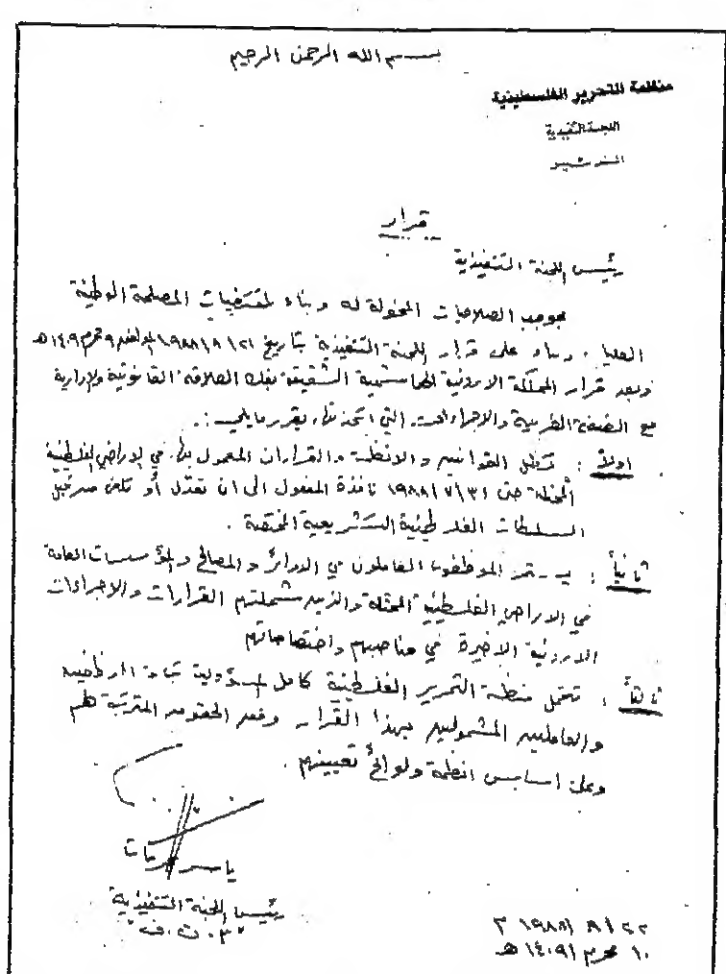 بسم الله الرحمن الرحيم
منظمة التحرير الفلسطينية
اللجنة التنفيذية
قرار
رئيس اللجنة التنفيذية
بموجب الصلاحيات المخولة له وبناء لمقتضيات المصلحة الوطنية
العليا، وبناء على قرار اللجنة التنفيذية بتاريخ ٢١/٨/١٩٨٨ الموافق ٩ محرم ١٤٠٩هـ
وبعد قرار المملكة الاردنية الهاشمية الشقيقة بفك العلاقة القانونية والإدارية
مع الضفة الغربية والاجراءات التي اتخذتها، يقرر مايلي :
اولاً : تظل القوانين والانظمة والقرارات المعمول بها، في الاراضي الفلسطينية
المحتلة حتى ٣١/٧/١٩٨٨ نافذة المفعول الى ان تعدل أو تلغى من قبل
السلطات الفلسطينية التشريعية المختصة .
ثانياً : يستمر الموظفون العاملون في الدوائر والمصالح والمؤسسات العامة
في الاراضي الفلسطينية المحتلة والذين شملتهم القرارات والاجراءات
الاردنية الاخيرة في مناصبهم واختصاصاتهم
ثالثاً : تتحمل منظمة التحرير الفلسطينية كامل المسؤولية تجاه الموظفين
والعاملين المشمولين بهذا القرار وفق الحقوق المترتبة لهم
وعلى اساس انظمة ولوائح تعيينهم .
ياسر عرفات
رئيس اللجنة التنفيذية
"م.ت.ف"
٢٢/٨/١٩٨٨ م
١٠ محرم ١٤٠٩ هـ